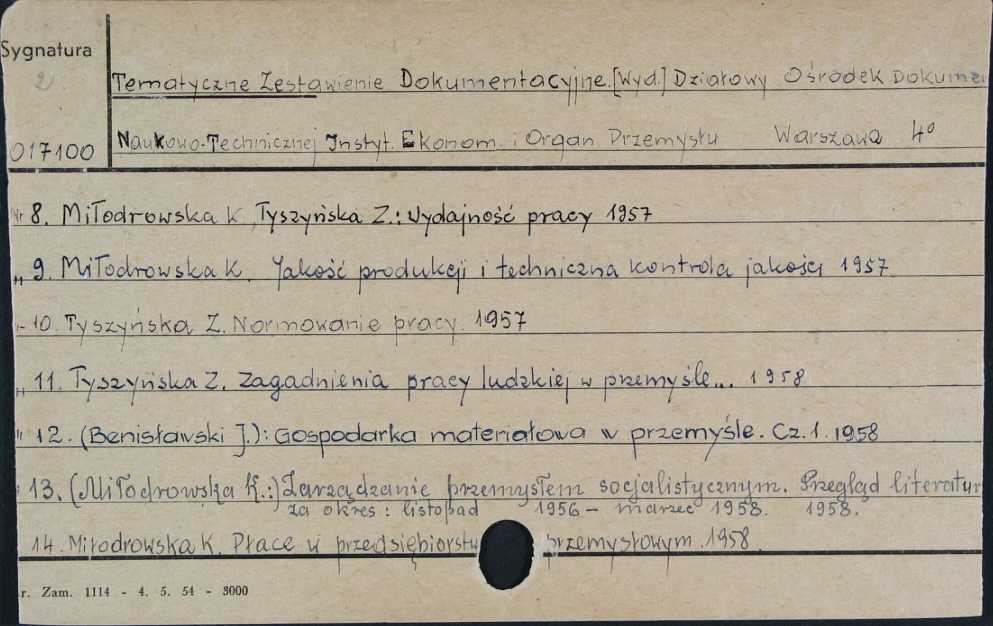 Sygnatura
Tematyczne Zestawienie Dokumentacyjne. [Wyd.] Działowy Ośrodek Dokumen
017100 Naukowo-Technicznej Instyt. Ekonom. i Organ Przemysłu Warszawa 4°
Nr 8. Miłodrowska K Tyszyńska Z.: Wydajność pracy 1957
„ 9. Miłodrowska K. Jakość produkcji i techniczna kontrola jakości 1957
„ 10. Tyszyńska Z. Normowanie pracy. 1957
„ 11. Tyszyńska Z. Zagadnienia pracy ludzkiej w przemyśle... 1958
" 12. (Benisławski J.): Gospodarka materiałowa w przemyśle. Cz. 1. 1958
13. (Miłodrowska K.:) Zarządzanie przemysłem socjalistycznym. Przegląd literatur
za okres: listopad 1956 – marzec 1958. 1958.
14. Miłodrowska K. Płace w przedsiębiorstw przemysłowym. 1958.
r. Zam. 1114 - 4. 5. 54 - 3000